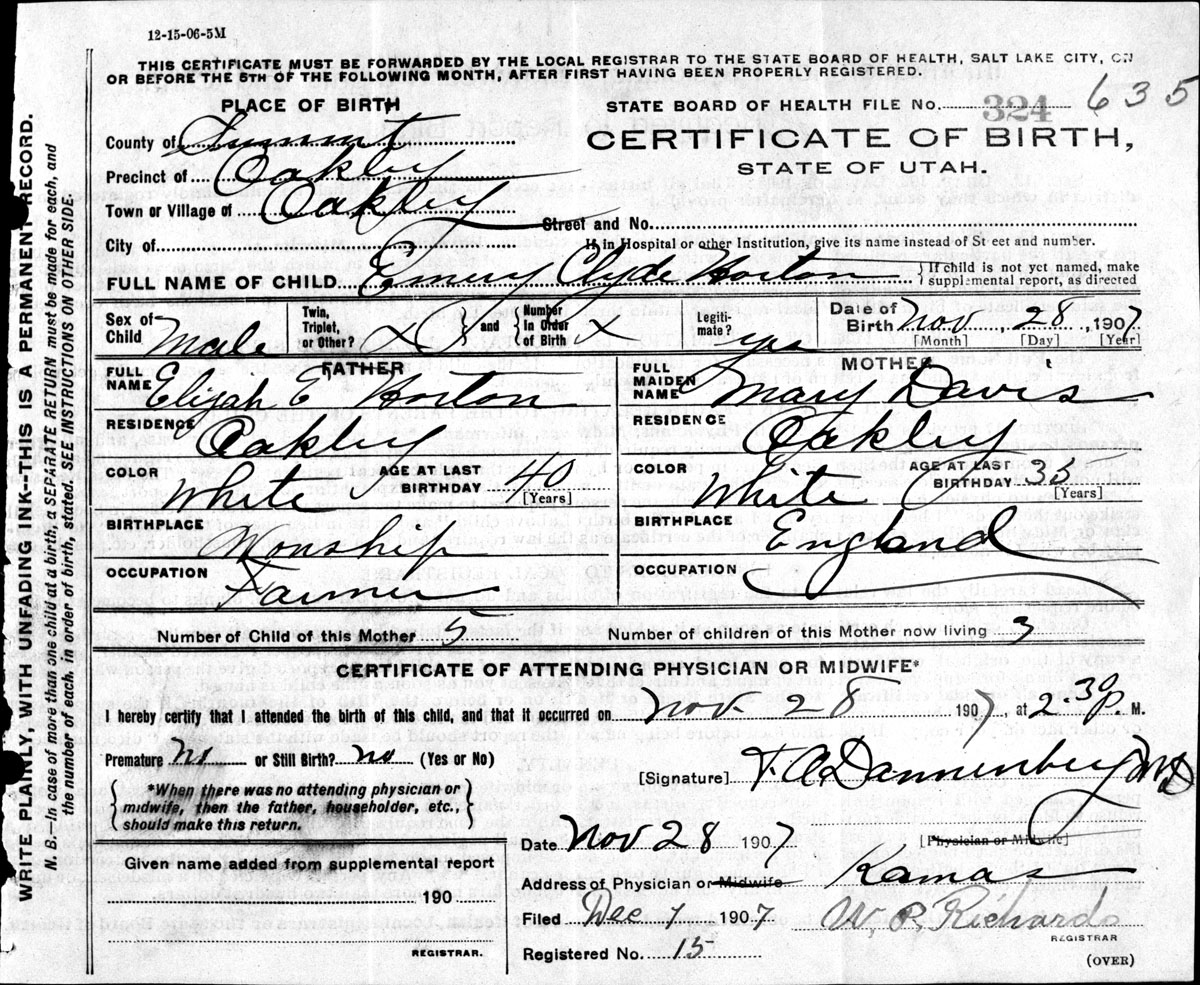 12-15-06-5M
THIS CERTIFICATE MUST BE FORWARDED BY THE LOCAL REGISTRAR TO THE STATE BOARD OF HEALTH, SALT LAKE CITY, ON
OR BEFORE THE 5TH OF THE FOLLOWING MONTH, AFTER FIRST HAVING BEEN PROPERLY REGISTERED.
WRITE PLAINLY, WITH UNFADING INK--THIS IS A PERMANENT RECORD.
N. B.—In case of more than one child at a birth, a SEPARATE RETURN must be made for each, and
the number of each, in order of birth, stated. SEE INSTRUCTIONS ON OTHER SIDE.
PLACE OF BIRTH
County of Summit
Precinct of Oakley
Town or Village of Oakley
City of
STATE BOARD OF HEALTH FILE No. 324 635
CERTIFICATE OF BIRTH,
STATE OF UTAH.
Street and No.
If in Hospital or other Institution, give its name instead of St eet and number.
FULL NAME OF CHILD Emery Clyde Horton { If child is not yet named, make
supplemental report, as directed
Sex of Child Male
Twin, Triplet, or Other? X and Number in Order of Birth X
Legiti-mate? yes
Date of Birth Nov, 28, 1907
[Month] [Day] [Year]
FATHER
FULL NAME Elijah E Horton
RESIDENCE Oakley
COLOR White AGE AT LAST BIRTHDAY 40 [Years]
BIRTHPLACE
OCCUPATION Farmer
MOTHER
FULL MAIDEN NAME Mary Davis
RESIDENCE Oakley
COLOR White AGE AT LAST BIRTHDAY [Years]
BIRTHPLACE England
OCCUPATION
Number of Child of this Mother 5 Number of children of this Mother now living 3
CERTIFICATE OF ATTENDING PHYSICIAN OR MIDWIFE*
I hereby certify that I attended the birth of this child, and that it occurred on Nov. 28 1907, at 2.30 P. M.
Premature no or Still Birth? no (Yes or No)
*When there was no attending physician or
midwife, then the father, householder, etc.,
should make this return.
[Signature] F. A. Dannenberg MD
[Physician or Midwife]
Given name added from supplemental report
190
REGISTRAR.
Date Nov 28 1907
Address of Physician or Midwife Kamas
Filed Dec 7 1907 W. P. Richards
REGISTRAR
Registered No. 15
(OVER)